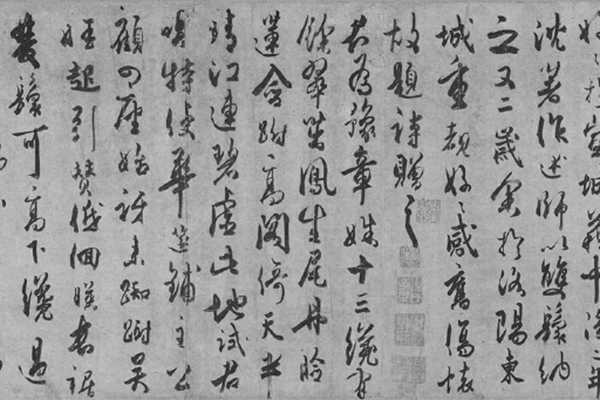 好〻於宣城籍中後二年
沈著作述師以雙鬟納
之又二歲余於洛陽東
城重覩好〻感舊傷懷
故題詩贈之
君為豫章姝十三纔有
餘翠茁鳳生尾丹臉
蓮含跗高閣倚天半
晴江連碧虛此地試君
唱特使華筵鋪主公
顧四座始訝來踟躕吳
娃起引贊低佪映長裾
雙鬟可高下纔過